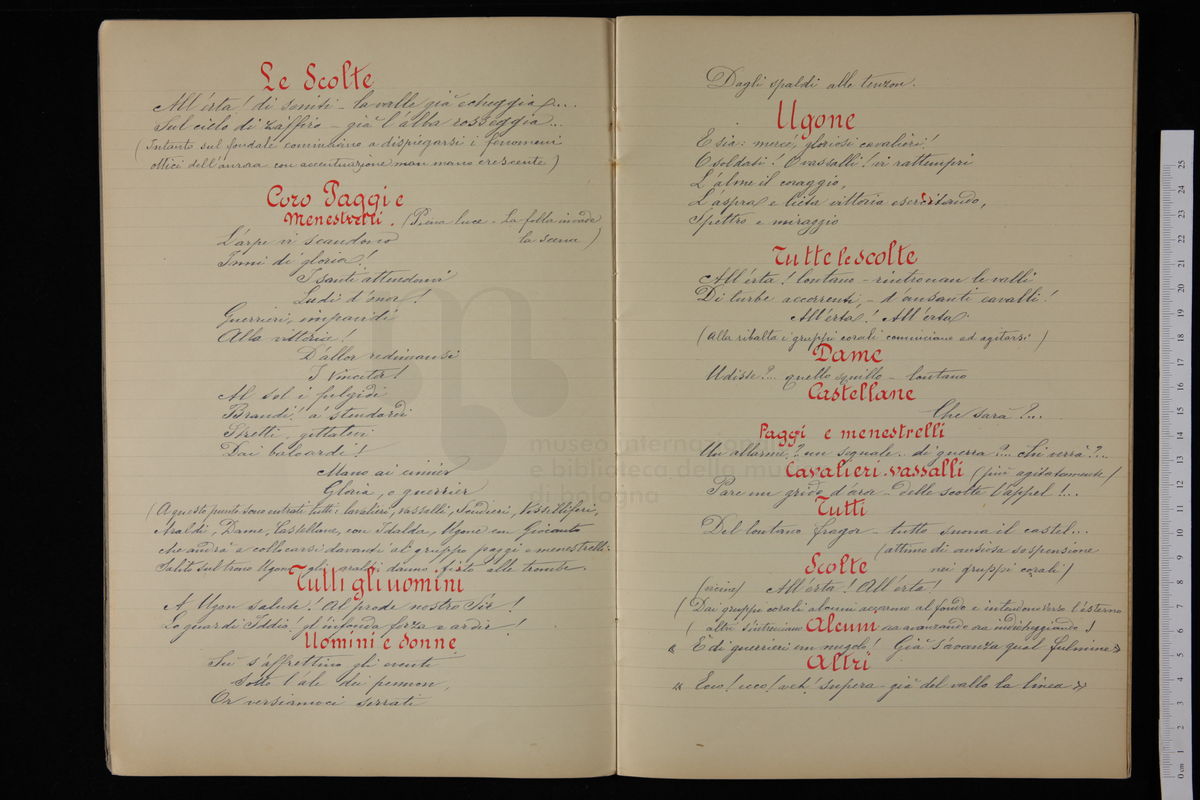 Le Scolte
All'erta! di sentiti – la valle già echeggia...
Sul cielo di zàffiro – già l'alba rosseggia...
(Intanto sul fondale cominciano a dispiegarsi i fenomeni
ottici dell'aurora con accentuazione man mano crescente)
Coro Paggi e
Menestrelli. (Piena luce – La folla invade
la scena)
L'arpe vi scandono
Inni di gloria!
I santi attendonvi
Ludi d'onor!
Guerrieri, impavidi
Alla vittoria!
D'allor redimansi
I vincitor!
Al sol i fulgidi
Brandi! a' stendardi
Stretti, gittatevi
Dai baluardi!
Mano ai cimier
Gloria, o guerrier
(A questo punto sono entrati tutti: Cavalieri, Vassalli, Scudieri, Vessilliferi,
Araldi, Dame, Castellane, con Idalda, Ugone em Giocanto
che andrà a collocarsi davanti al gruppo paggi e menestrelli.
Salito sul trono Ugone gli araldi danno fiato alle trombe.
Tutti gli uomini
A Ugon salute! Al prode nostro Sir!
Lo guardi Iddio! gl'infonda forza e ardir!
Uomini e donne
Su s'affrettino gli eventi
Sotto l'ale dei pennon,
Or versiamoci serrati
Dagli spaldi alla tenzon.
Ugone
E sia: mercè, gloriosi cavalieri!
O soldati! O vassalli! vi rattempri
L'alme il coraggio,
L'aspra e lieta vittoria esercitando,
Spettro e miraggio
Tutte le scolte
All'erta! lontano – rintronan le valli
Di turbe accorrenti, – d'ansanti cavalli!
All'erta! All'erta.
(alla ribalta i gruppi corali cominciano ad agitarsi)
Dame
Udiste?... quello squillo – lontano
Castellane
Che sarà?...
Paggi e menestrelli
Un allarme,? un segnale.. di guerra?... Chi verrà?...
Cavalieri.vassalli (più agitatamente)
Pare un grido d'ora – delle scolte l'appel!...
Tutti
Del lontano fragor – tutto suona il castel...
(attimo di ansiosa sospensione
nei gruppi corali)
Scolte
(vicine) All'erta! All'erta!
(Dai gruppi corali alcuni accorrono al fondo e intendono verso l'esterno
(altri s'intrecciano Alcuni ora avanzando ora indietreggiando)
« È di guerrieri un nugolo! Già s'avanza qual fulmine»
Altri
« Ecco! ecco! veh! supera – già del vallo la linea »
museo internazionale
e biblioteca della musica
di bologna
0 cm 1 2 3 4 5 6 7 8 9 10 11 12 13 14 15 16 17 18 19 20 21 22 23 24 25